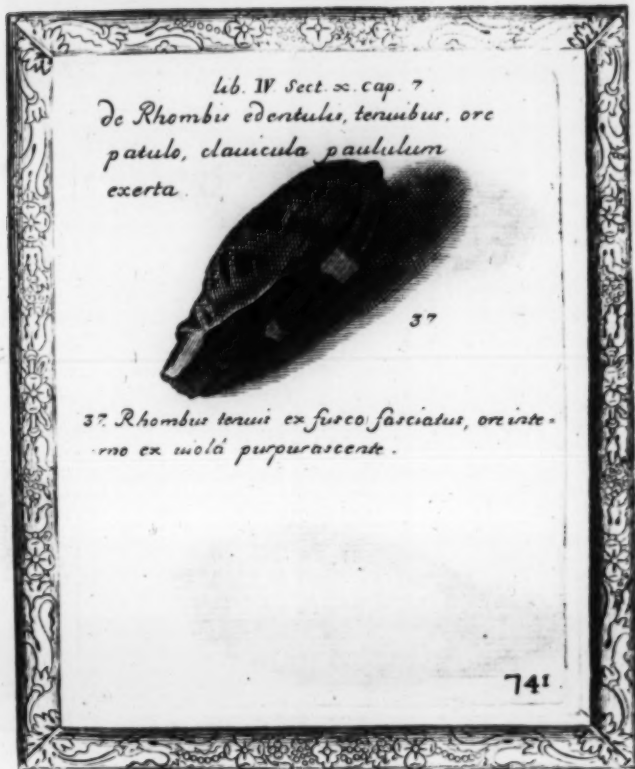 lib. IV Sect. x. cap. 7.
de Rhombis edentulis, tenuibus, ore
patulo, clauicula paululum
exerta.
37
37 Rhombus tenuis ex fusco fasciatus, ore inte-
rno ex uiolâ purpurascente.
741